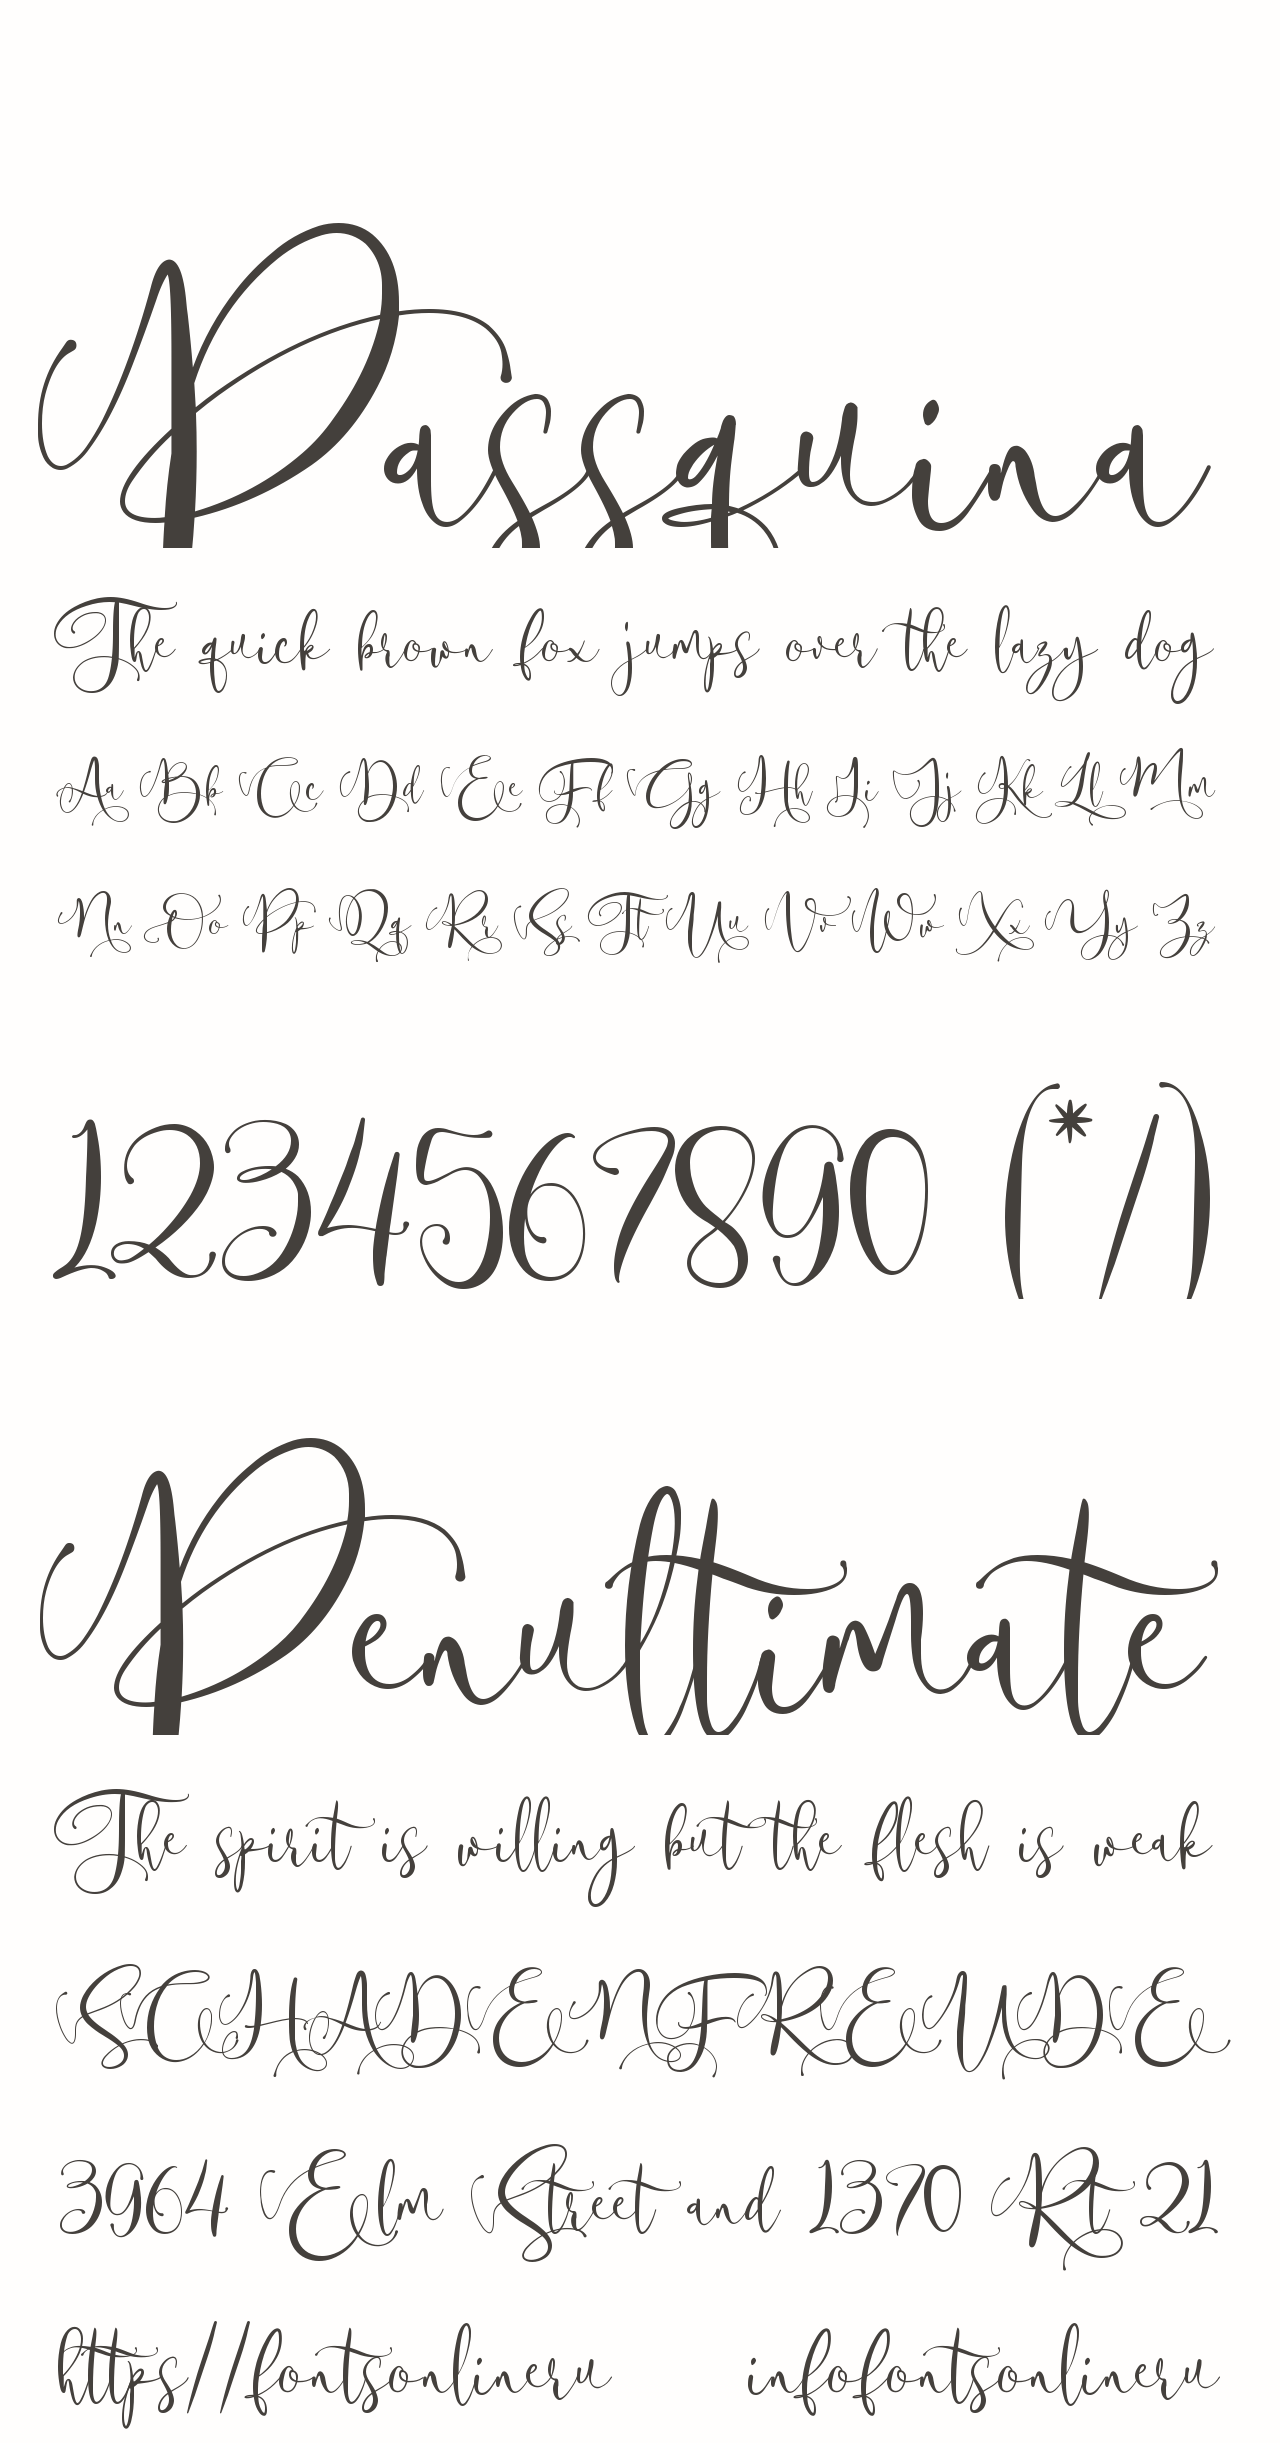 Passquina
The quick brown fox jumps over the lazy dog
Aa Bb Cc Dd Ee Ff Gg Hh Ii Jj Kk Ll Mm
Nn Oo Pp Qq Rr Ss Tt Uu Vv Ww Xx Yy Zz
1234567890 (*/)
Penultimate
The spirit is willing but the flesh is weak
SCHADENFREUDE
3964 Elm Street and 1370 Rt 21
https//fontsonlineru infofontsonlineru